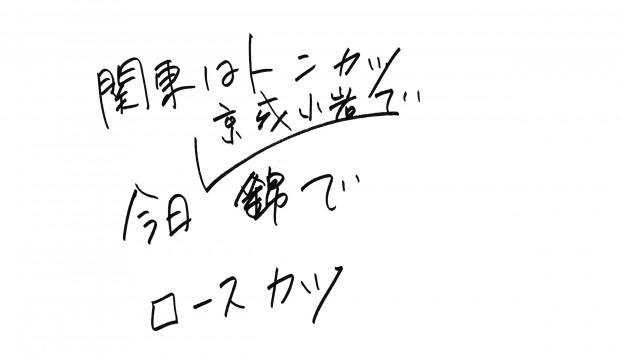 関東はトンカツ
京成小岩で
今日 錦で
ロースカツ